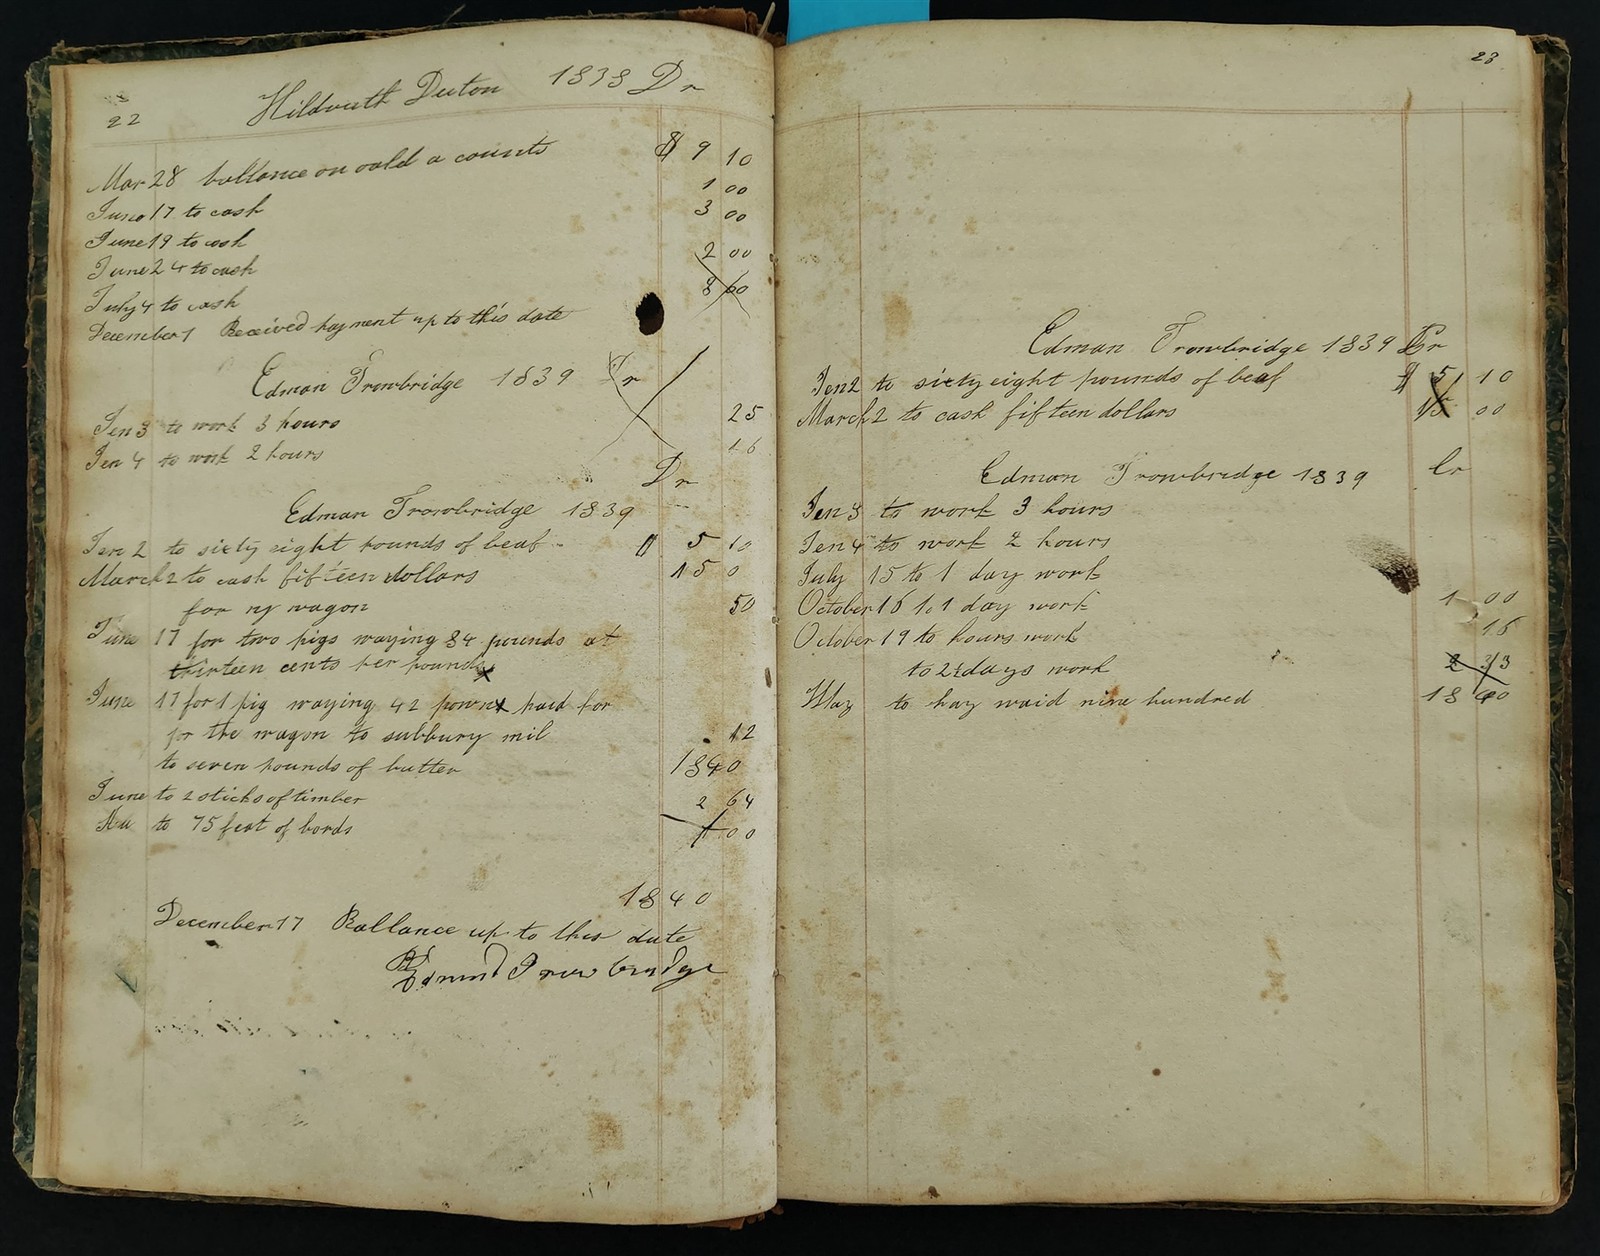 22
Hildruth Duton 1838 Dr
Mar 28 ballance on oald a counts $ 9 10
June 17 to cash 1 00
June 19 to cash 3 00
June 24 to cash 2 00
July 4 to cash 8 60
December 1 Received payment up to this date
Edman Trowbridge 1839 Cr
Jen 3 to work 3 hours 25
Jen 4 to work 2 hours 16
Dr
Edman Trowbridge 1839
Jen 2 to sixty eight pounds of beaf $ 5 10
March 2 to cash fifteen dollars 15 0
for my wagon 50
June 17 for two pigs waying 84 pounds at
thirteen cents per pound
June 17 for 1 pig waying 42 paid for
for the wagon to subbury mil 12
to seven pounds of butter 1840
June to 2 sticks of timber 2 64
to 75 feat of bords 1 00
1840
December 17 Ballance up to this date
Edmund Trowbridge
23
Edman Trowbridge 1839 Dr
Jen 2 to sixty eight pounds of beaf $ 5 10
March 2 to cash fifteen dollars 15 00
Edman Trowbridge 1839 Cr
Jen 3 to work 3 hours
Jen 4 to work 2 hours
July 15 to 1 day work
October 16 to 1 day work 1 00
October 19 to hours work 16
to 2½ days work 2 33
May to hay waid nine hundred 18 40